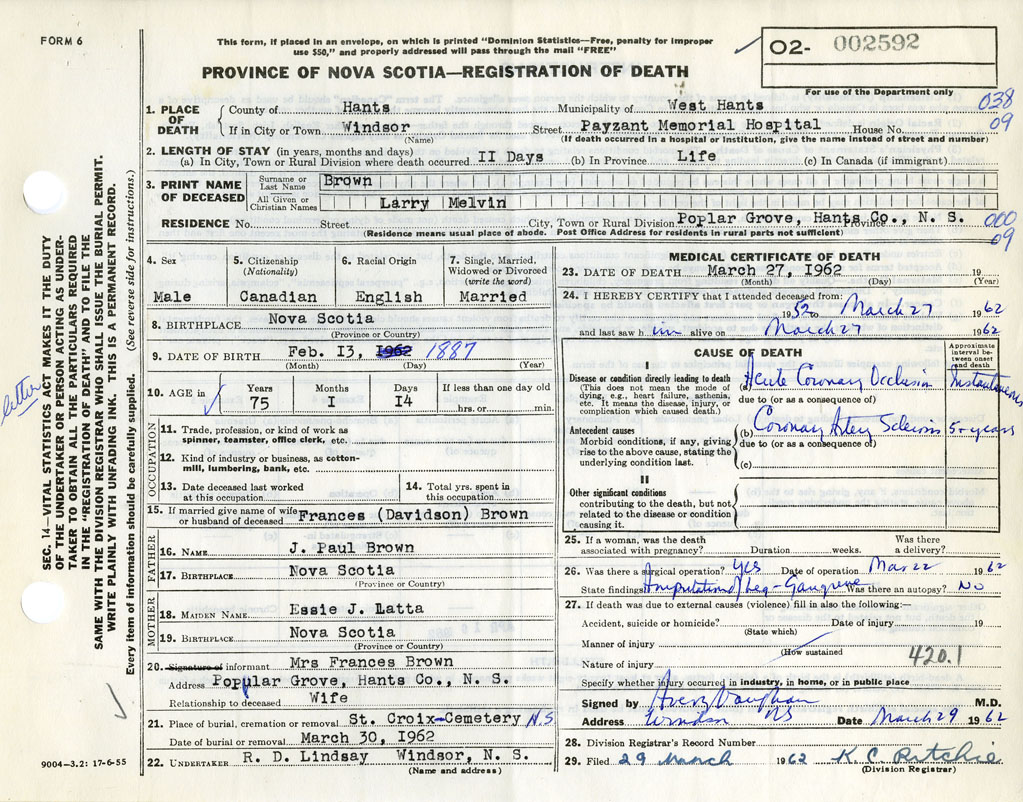 FORM 6
This form, if placed in an envelope, on which is printed "Dominion Statistics—Free, penalty for improper
use $50," and properly addressed will pass through the mail "FREE"
PROVINCE OF NOVA SCOTIA—REGISTRATION OF DEATH
O2- 002592
For use of the Department only
SEC. 14—VITAL STATISTICS ACT MAKES IT THE DUTY
OF THE UNDERTAKER OR PERSON ACTING AS UNDER-
TAKER TO OBTAIN ALL THE PARTICULARS REQUIRED
IN THE "REGISTRATION OF DEATH" AND TO FILE THE
SAME WITH THE DIVISION REGISTRAR WHO SHALL ISSUE THE BURIAL PERMIT.
WRITE PLAINLY WITH UNFADING INK. THIS IS A PERMANENT RECORD.
Every item of information should be carefully supplied. (See reverse side for instructions.)
letter
1. PLACE OF DEATH
County of Hants Municipality of West Hants 038
If in City or Town Windsor Street Payzant Memorial Hospital House No. 09
(Name) (If death occurred in a hospital or institution, give the name instead of street and number)
2. LENGTH OF STAY (in years, months and days)
(a) In City, Town or Rural Division where death occurred II Days (b) In Province Life (c) In Canada (if immigrant)
3. PRINT NAME OF DECEASED
Surname or Last Name Brown
All Given or Christian Names Larry Melvin
RESIDENCE No. Street City, Town or Rural Division Poplar Grove, Hants Co., N. S. Province 000
(Residence means usual place of abode. Post Office Address for residents in rural parts not sufficient) 09
4. Sex
Male
5. Citizenship
(Nationality)
Canadian
6. Racial Origin
English
7. Single, Married,
Widowed or Divorced
(write the word)
Married
8. BIRTHPLACE Nova Scotia
(Province or Country)
9. DATE OF BIRTH Feb. I3, I962 1887
(Month) (Day) (Year)
10. AGE in
Years Months Days If less than one day old
75 I I4 hrs. or min.
OCCUPATION
11. Trade, profession, or kind of work as
spinner, teamster, office clerk, etc.
12. Kind of industry or business, as cotton-
mill, lumbering, bank, etc.
13. Date deceased last worked
at this occupation
14. Total yrs. spent in
this occupation
15. If married give name of wife
or husband of deceased Frances (Davidson) Brown
FATHER
16. NAME J. Paul Brown
17. BIRTHPLACE Nova Scotia
(Province or Country)
MOTHER
18. MAIDEN NAME Essie J. Latta
19. BIRTHPLACE Nova Scotia
(Province or Country)
20. Signature of informant Mrs Frances Brown
Address Popular Grove, Hants Co., N. S.
Relationship to deceased Wife
21. Place of burial, cremation or removal St. Croix-Cemetery N.S.
Date of burial or removal March 30, I962
22. UNDERTAKER R. D. Lindsay Windsor, N. S.
(Name and address)
9004-3.2: 17-6-55
MEDICAL CERTIFICATE OF DEATH
23. DATE OF DEATH March 27, I962 19
(Month) (Day) (Year)
24. I HEREBY CERTIFY that I attended deceased from:
1952 to March 27 1962
and last saw h im alive on March 27 1962
CAUSE OF DEATH
Approximate
interval be-
tween onset
and death
I
Disease or condition directly leading to death
(This does not mean the mode of
dying, e.g., heart failure, asthenia,
etc. It means the disease, injury, or
complication which caused death.)
(a) Acute Coronary Occlusion Instantaneous
due to (or as a consequence of)
Antecedent causes
Morbid conditions, if any, giving
rise to the above cause, stating the
underlying condition last.
(b) Coronary Artery Sclerosis 5+years
due to (or as a consequence of)
(c)
II
Other significant conditions
contributing to the death, but not
related to the disease or condition
causing it.
25. If a woman, was the death
associated with pregnancy? Duration weeks. Was there
a delivery?
26. Was there a surgical operation? yes Date of operation Mar 22 1962
State findings Amputation leg - Gangrene Was there an autopsy? No
27. If death was due to external causes (violence) fill in also the following:—
Accident, suicide or homicide? Date of injury 19
(State which)
Manner of injury
(How sustained
Nature of injury 420.1
Specify whether injury occurred in industry, in home, or in public place
Signed by Avery Vaughan M.D.
Address Windsor NS Date March 29 1962
28. Division Registrar's Record Number
29. Filed 29 March 1962 K. C. Ritchie
(Division Registrar)